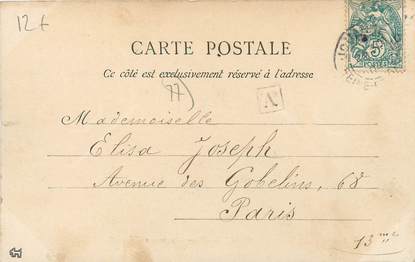 12 f
CARTE POSTALE
Ce côté est exclusivement réservé à l'adresse
77
A
Mademoiselle
Elisa Joseph
Avenue des Gobelins, 68
Paris
13me
5